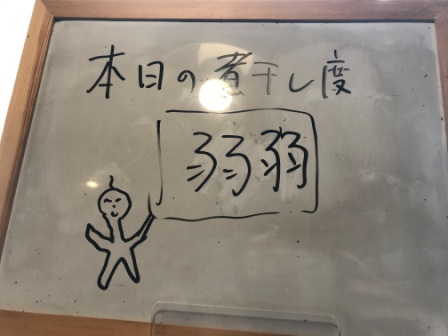 本日の煮干し度
弱弱